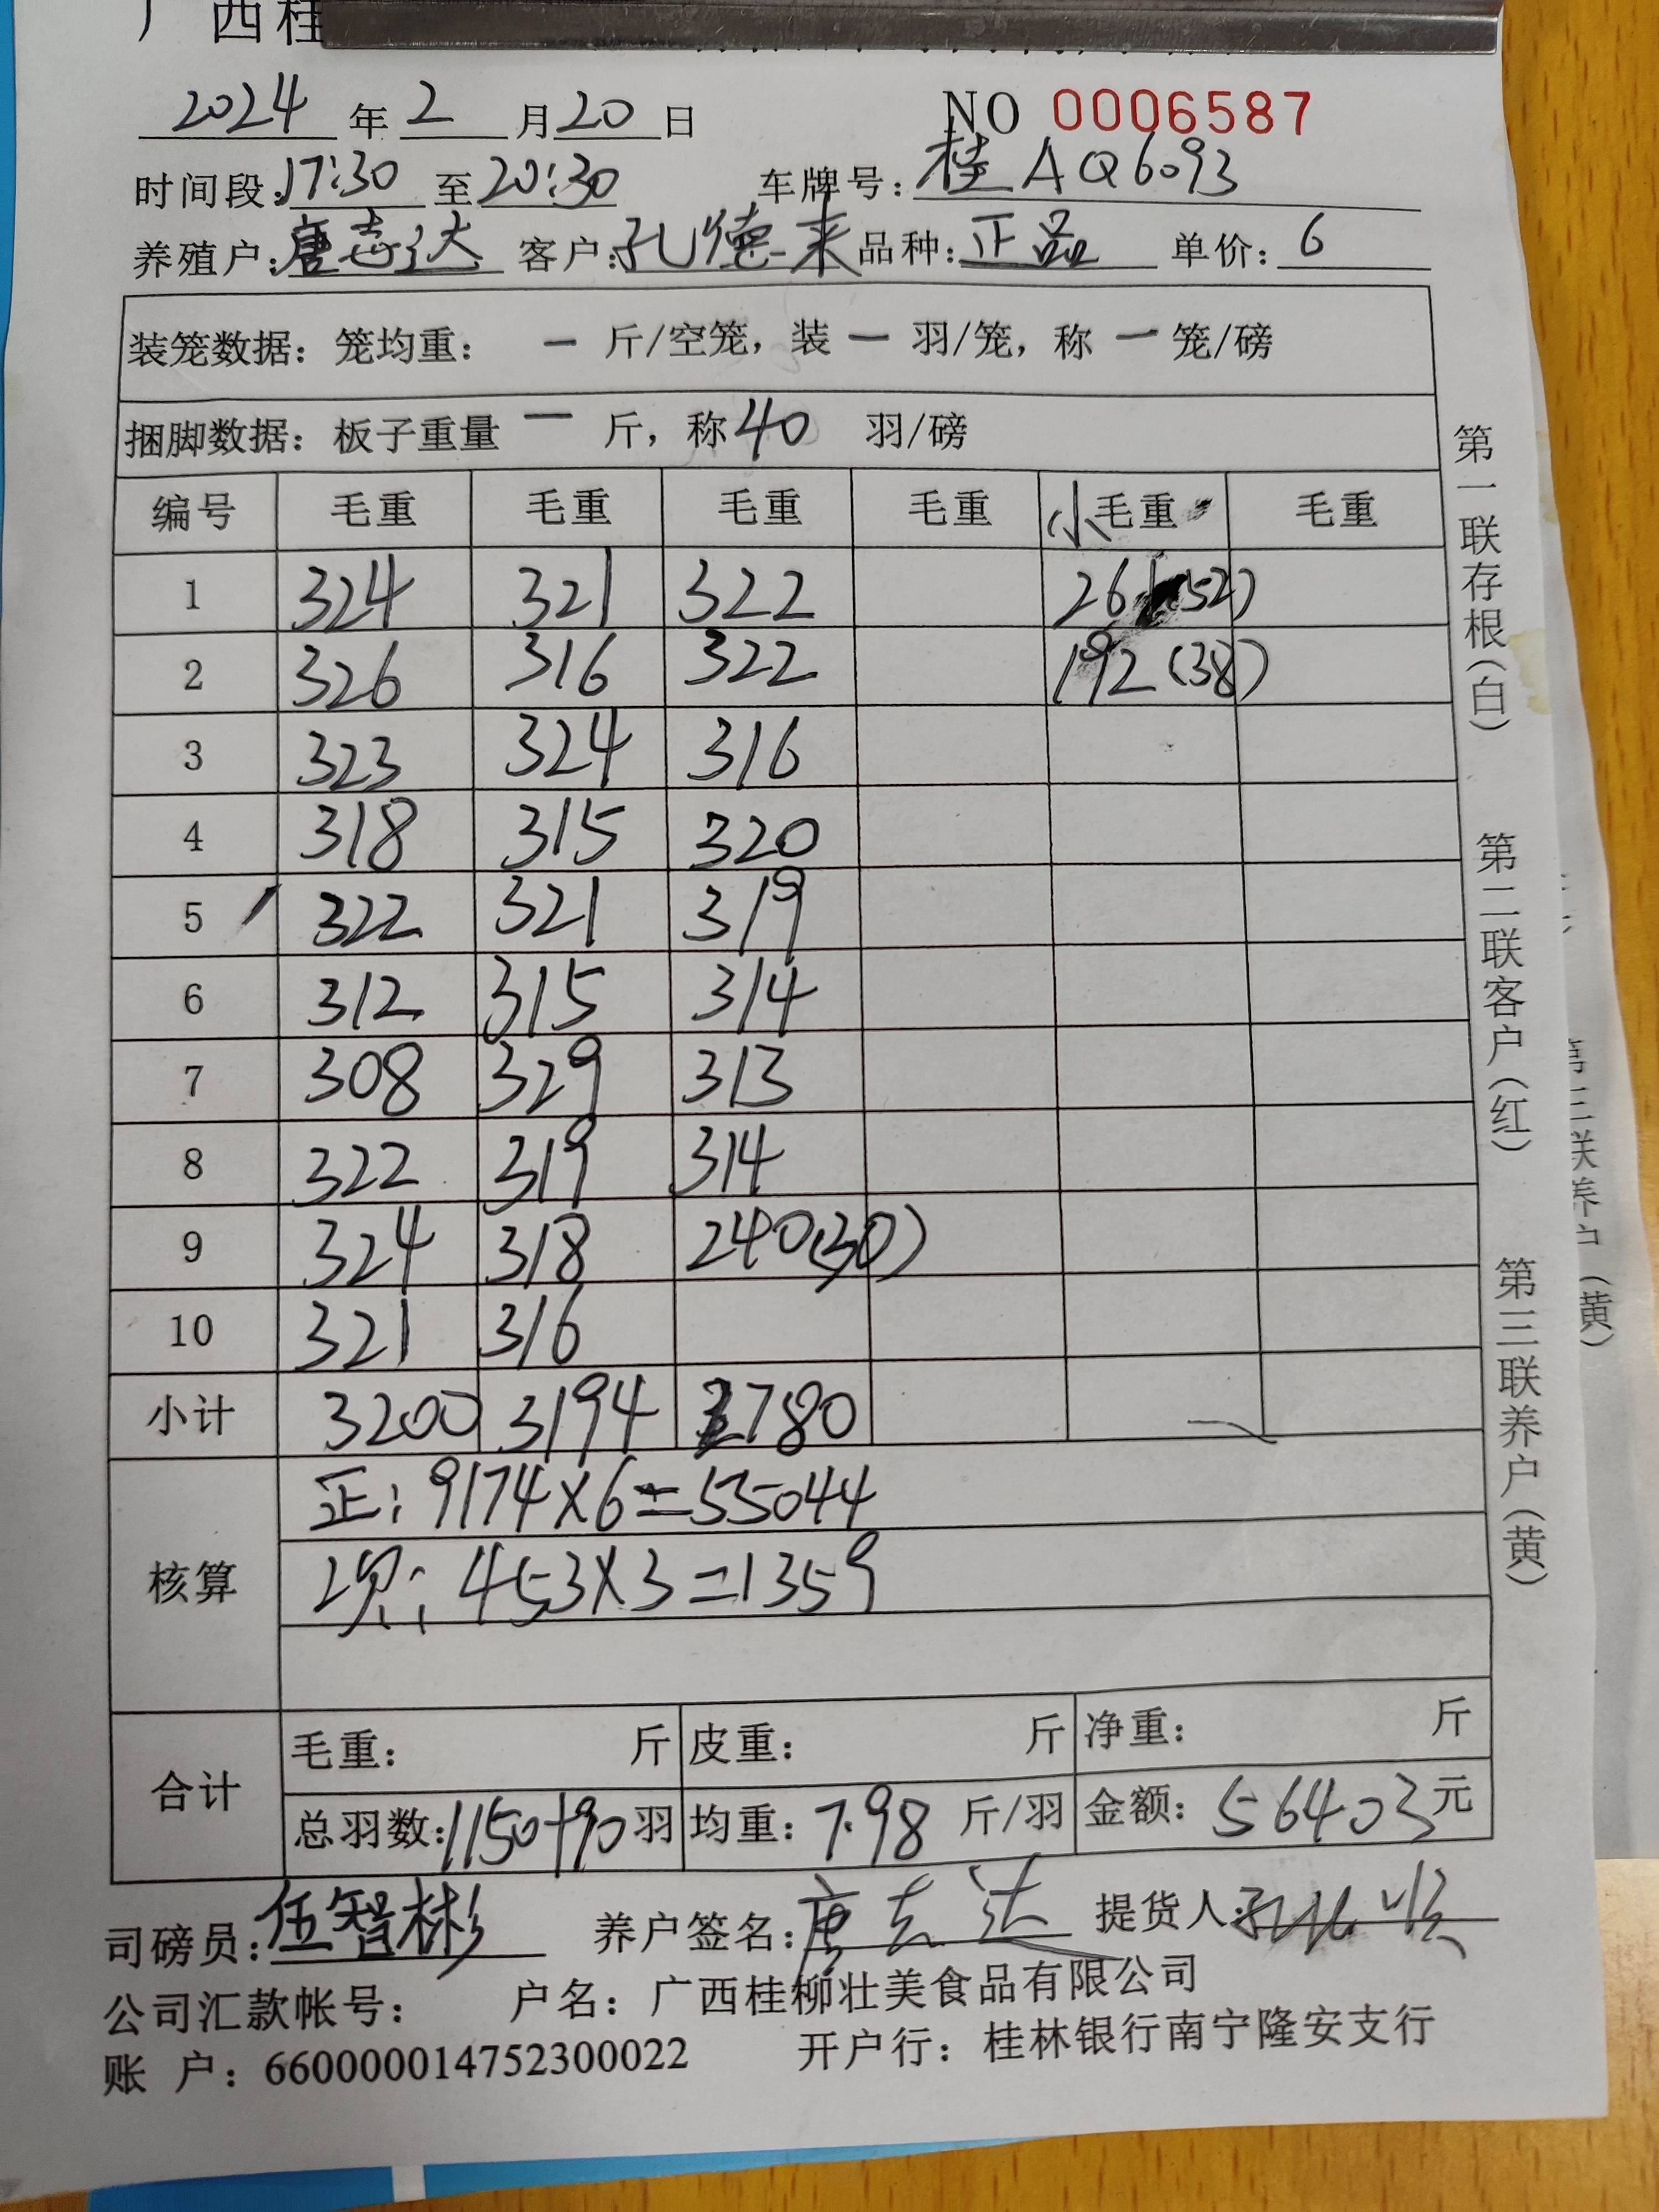 广西桂
2024 年 2 月 20 日 NO 0006587
时间段: 17:30 至 20:30 车牌号: 桂AQ6093
养殖户: 唐志达 客户: 孔德来 品种: 正品 单价: 6
装笼数据: 笼均重: — 斤/空笼, 装 — 羽/笼, 称 — 笼/磅
捆脚数据: 板子重量 — 斤, 称 40 羽/磅
编号 毛重 毛重 毛重 毛重 小毛重 毛重
1 324 321 322 261(52)
2 326 316 322 192(38)
3 323 324 316
4 318 315 320
5 322 321 319
6 312 315 314
7 308 329 313
8 322 319 314
9 324 318 240(30)
10 321 316
小计 3200 3194 2780
核算
正: 9174×6=55044
: 453×3=1359
合计
毛重: 斤 皮重: 斤 净重: 斤
总羽数: 1150+90 羽 均重: 7.98 斤/羽 金额: 56403 元
司磅员: 伍智彬 养户签名: 唐志达 提货人:
公司汇款帐号: 户名: 广西桂柳壮美食品有限公司
账 户: 660000014752300022 开户行: 桂林银行南宁隆安支行
第一联存根(白)
第二联客户(红)
第三联养户(黄)
第三联养户(黄)